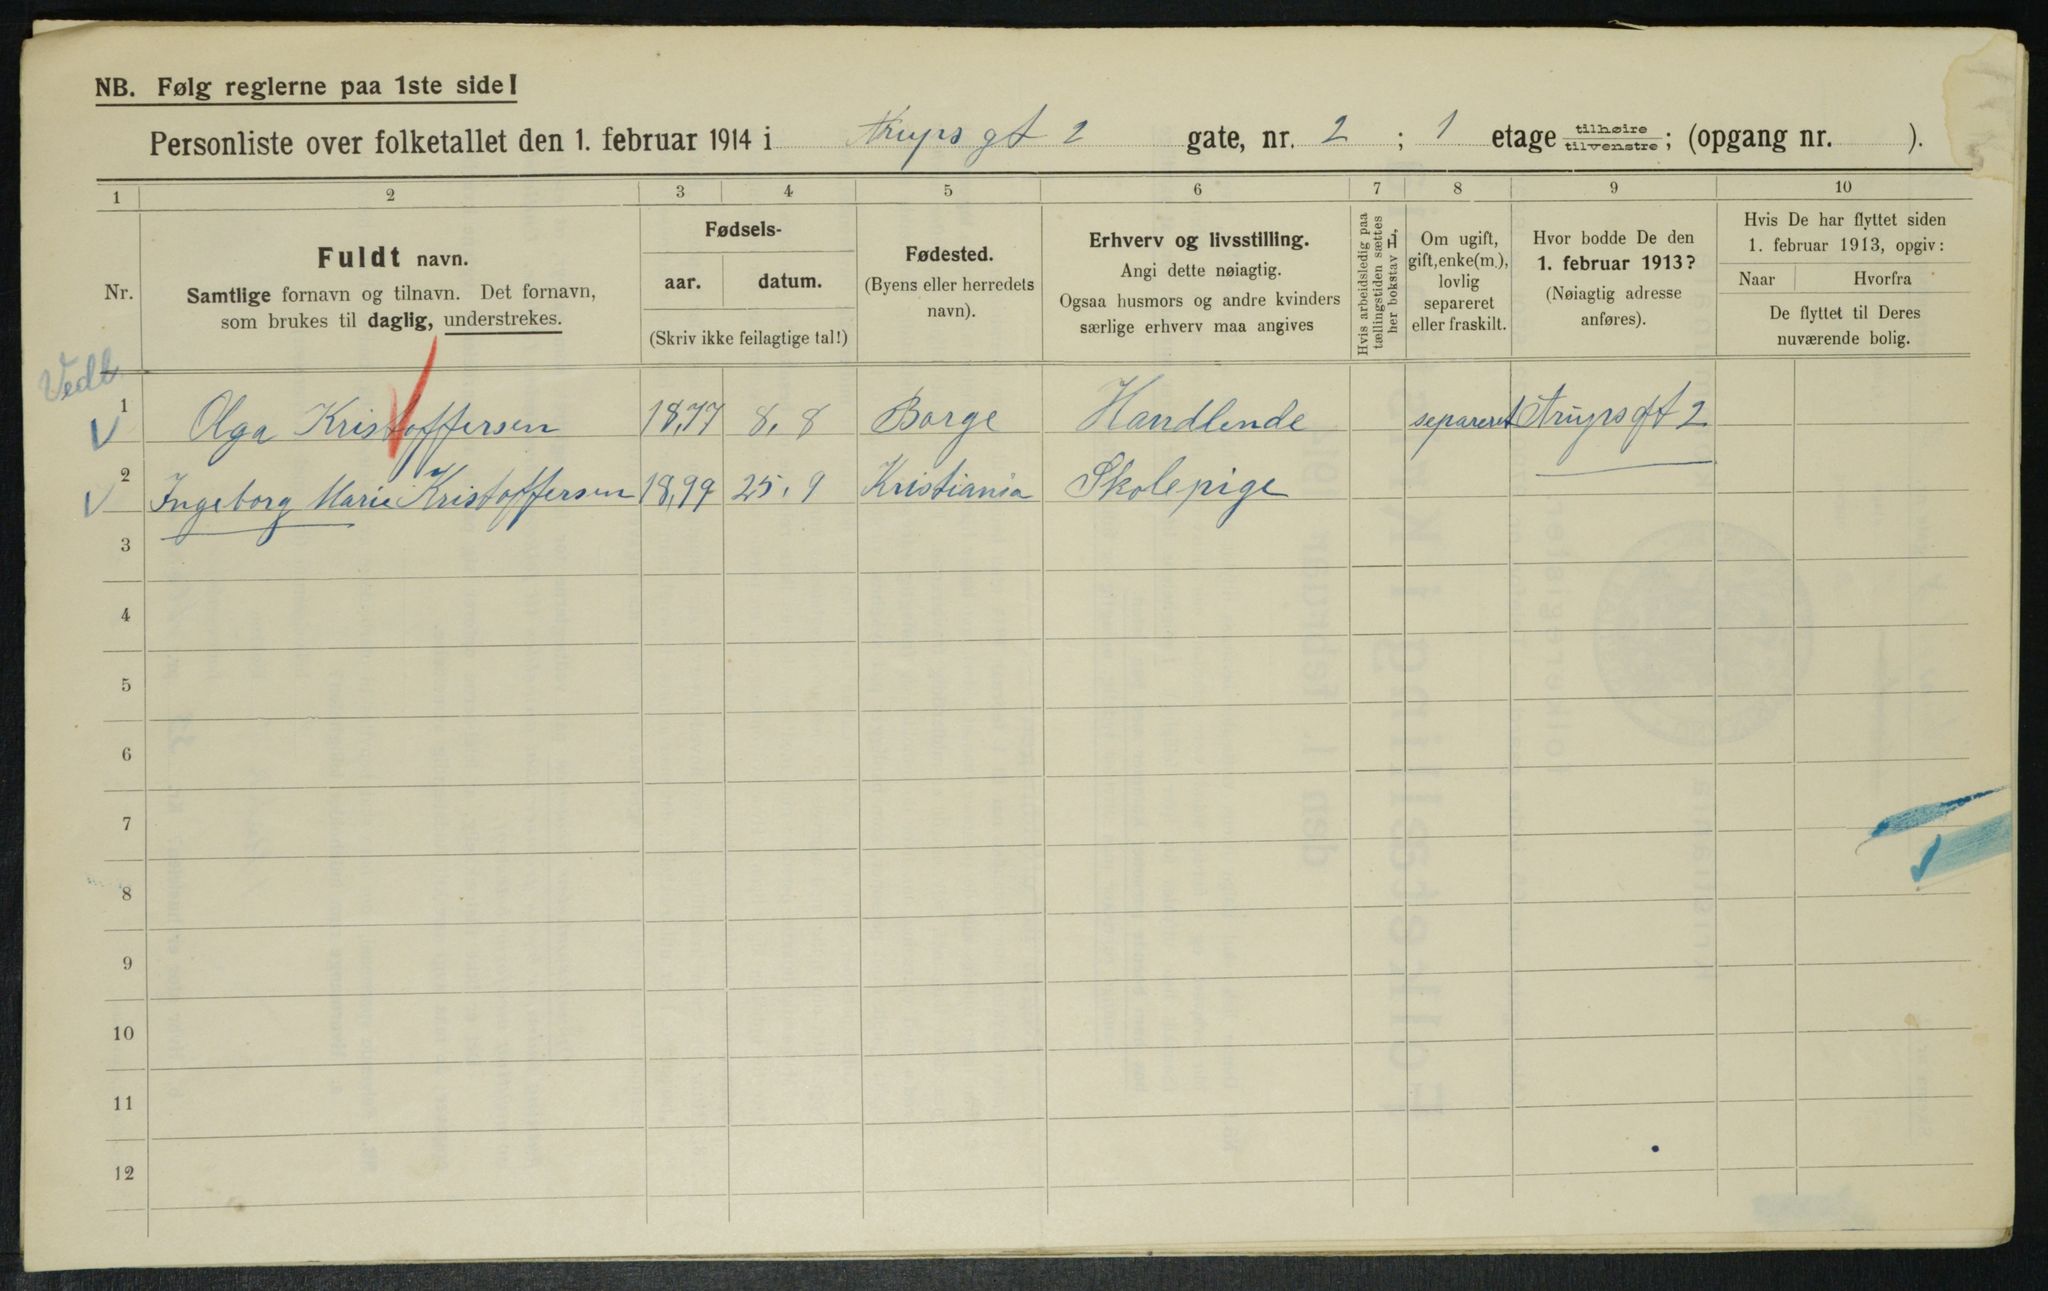 NB. Følg reglerne paa 1ste side!
Personliste over folketallet den 1. februar 1914 i Krups gt 2 gate, nr. 2 ; 1 etage tilhøire tilvenstre ; (opgang nr. ).
1 2 3 4 5 6 7 8 9 10
Nr.
Fuldt navn.
Samtlige fornavn og tilnavn. Det fornavn,
som brukes til daglig, understrekes.
Fødsels-
aar. datum.
(Skriv ikke feilagtige tal!)
Fødested.
(Byens eller herredets
navn).
Erhverv og livsstilling.
Angi dette nøiagtig.
Ogsaa husmors og andre kvinders
særlige erhverv maa angives
Hvis arbeidsledig paa
tællingstiden sættes
her bokstav L,
Om ugift,
gift, enke(m.),
lovlig
separeret
eller fraskilt.
Hvor bodde De den
1. februar 1913?
(Nøiagtig adresse
anføres).
Hvis De har flyttet siden
1. februar 1913, opgiv:
Naar Hvorfra
De flyttet til Deres
nuværende bolig.
Vedl.
1 Olga Kristoffersen 18,77 8,8 Borge Handlende separeret Krups gt 2
2 Ingeborg Marie Kristoffersen 18,99 25,9 Kristiania Skolepige
3
4
5
6
7
8
9
10
11
12